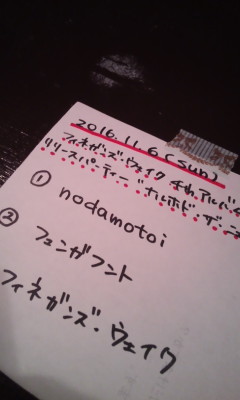 2016.11.6(sun)
フィネガンズ・ウェイク
リリースパーティー
① nodamotoi
② フェンガフント
フィネガンズ・ウェイク